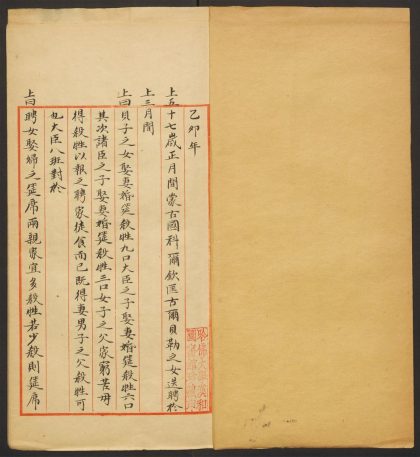 乙卯年
上五十七歲正月間蒙古國科爾欽匡古爾貝勒之女送聘於
上三月間
上曰貝子之女娶妻婚筵殺牲九口大臣之子娶妻婚筵殺牲六口
其次諸臣之子娶妻婚筵殺牲三口女子之父家窮苦毋
得殺牲以報之聘家徒食而已既得妻男子之父殺牲可
也大臣八班對於
上曰聘女娶婦之筵席兩親家宜多殺牲若少殺則筵席
哈佛大學漢和
圖書館珍藏印